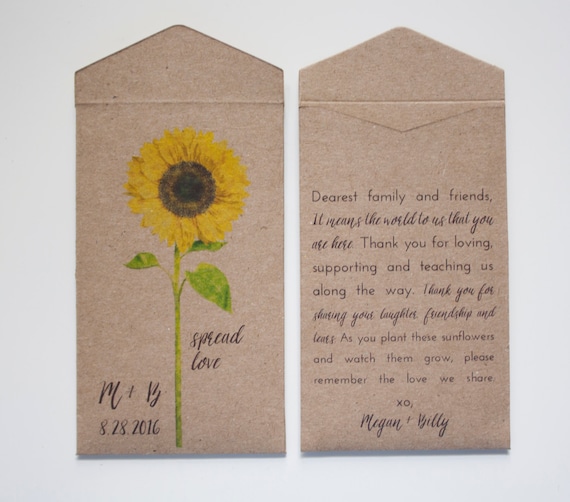 spread
love
M + B
8.28.2016
Dearest family and friends,
It means the world to us that you
are here. Thank you for loving,
supporting and teaching us
along the way. Thank you for
sharing your laughter, friendship and
tears. As you plant these sunflowers
and watch them grow, please
remember the love we share.
xo,
Megan + Billy